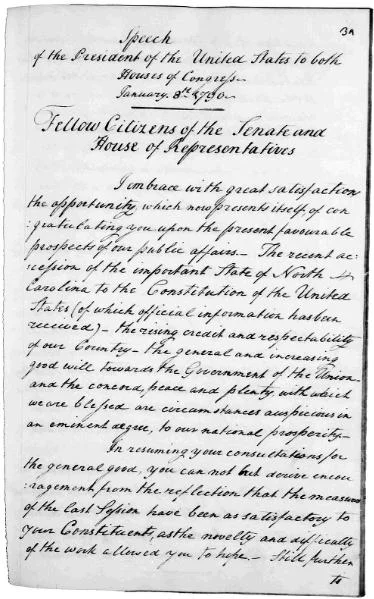 3A
Speech
of the President of the United States to both
Houses of Congress
January. 8th. 1790.
Fellow Citizens of the Senate and
House of Representatives
I embrace with great satisfaction
the opportunity, which now presents itself, of con
:gratulating you upon the present favourable
prospects of our public affairs. – The recent ac
:cession of the important State of North
Carolina to the Constitution of the United
States (of which official information has been
received) – the rising credit and respectability
of our Country – the general and increasing
good will towards the Government of the Union –
and the concord, peace and plenty, with which
we are blessed are circumstances auspicious in
an eminent degree, to our national prosperity. –
In resuming your consultations for
the general good, you can not but derive encou
:ragement from the reflection that the measures
of the last Session have been as satisfactory to
your Constituents, as the novelty and difficulty
of the work allowed you to hope. – Still further
to